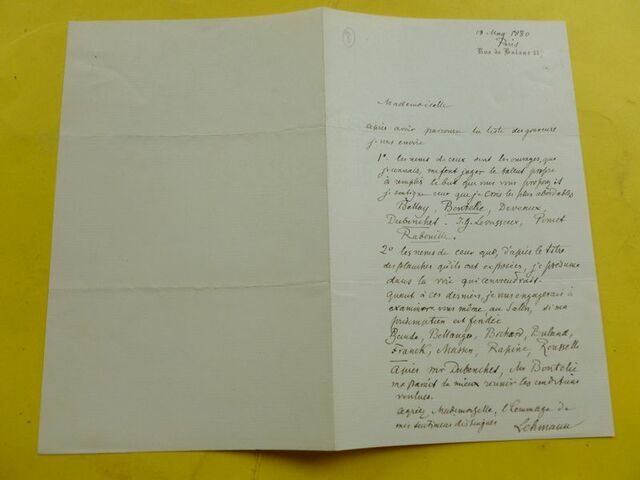 19 May 1880
Paris
Rue de Balzac 21,
Mademoiselle
après avoir parcouru la liste des graveurs
je vous envoie
1° les noms de ceux dont les ouvrages, que
je connais, me font juger le talent propre
à remplir le but que vous vous proposez, et
je souligne ceux que je crois les plus abordables
Bellay, Bontelié, Deveaux,
Dubouchet, Levasseur, Pomet
Rabouille.
2° les noms de ceux que, d'après le titre
des planches qu'ils ont exposées, je présume
dans la voie qui conviendrait
quant à ces derniers, je vous engagerais à
examiner vous même, au Salon, si ma
présomption est fondée
Bellanger, Bochard, Buland,
Franck, Massen, Rapine, Rousselle
Après Mr Dubouchet, Mr Bontelié
me parait le mieux réunir les conditions
voulues.
agréez Mademoiselle, l'hommage de
mes sentimens distingués
Lehmann